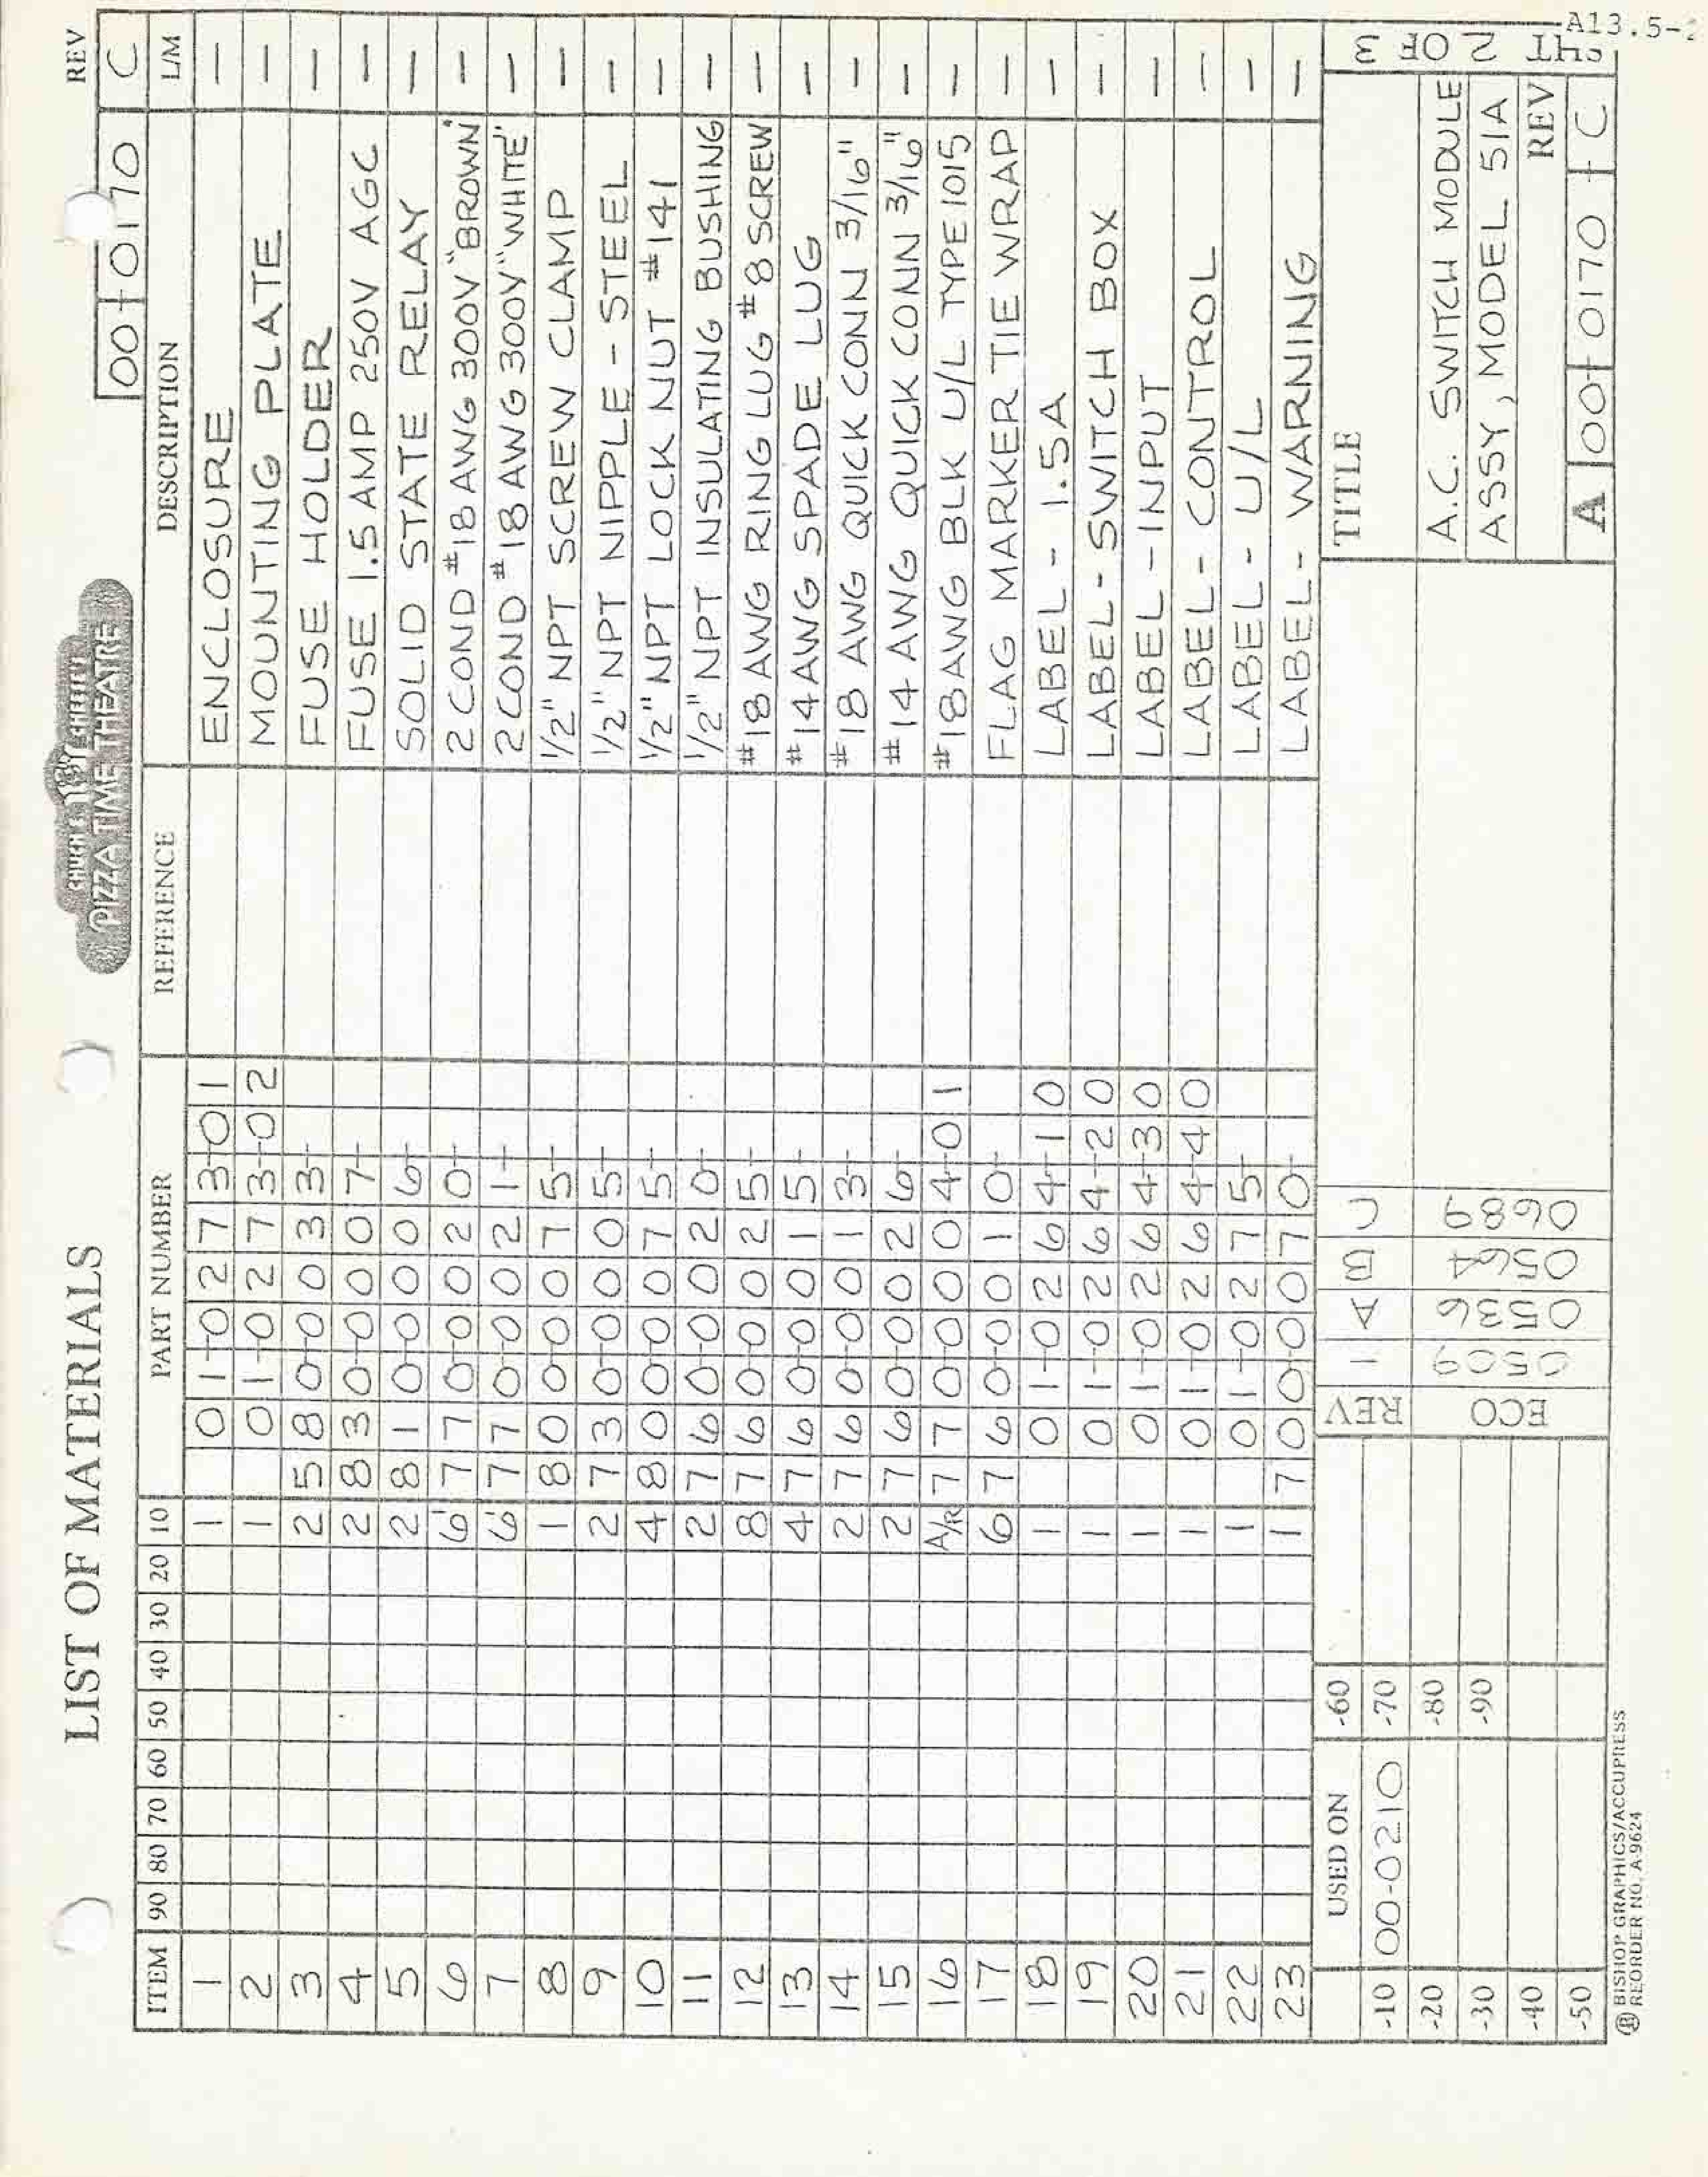 LIST OF MATERIALS
CHUCK E. CHEESE'S
PIZZA TIME THEATRE
REV
00-0170 C
ITEM 90 80 70 60 50 40 30 20 10 PART NUMBER REFERENCE DESCRIPTION L/M
1 1 01-0273-01 ENCLOSURE —
2 1 01-0273-02 MOUNTING PLATE —
3 2 580-0033- FUSE HOLDER —
4 2 830-0007- FUSE 1.5 AMP 250V AGC —
5 2 810-0006- SOLID STATE RELAY —
6 6' 770-0020- 2 COND #18 AWG 300V "BROWN" —
7 6' 770-0021- 2 COND #18 AWG 300V "WHITE" —
8 1 800-0075- 1/2" NPT SCREW CLAMP —
9 2 730-0005- 1/2" NPT NIPPLE - STEEL —
10 4 800-0075- 1/2" NPT LOCK NUT #141 —
11 2 760-0020- 1/2" NPT INSULATING BUSHING —
12 8 760-0025- #18 AWG RING LUG #8 SCREW —
13 4 760-0015- #14 AWG SPADE LUG —
14 2 760-0013- #18 AWG QUICK CONN 3/16" —
15 2 760-0026- #14 AWG QUICK CONN 3/16" —
16 A/R 770-0004-01 #18 AWG BLK U/L TYPE 1015 —
17 6 760-0010- FLAG MARKER TIE WRAP —
18 1 01-0264-10 LABEL - 1.5A —
19 1 01-0264-20 LABEL - SWITCH BOX —
20 1 01-0264-30 LABEL - INPUT —
21 1 01-0264-40 LABEL - CONTROL —
22 1 01-0275- LABEL - U/L —
23 1 700-0070- LABEL - WARNING —
USED ON
-10 00-0210 -60
-20 -70
-30 -80
-40 -90
-50
REV — A B C
ECO 0509 0536 0564 0689
TITLE
A.C. SWITCH MODULE
ASSY, MODEL 51A
REV
A 00-0170 - C
SHT 2 OF 3
A13.5-2
BISHOP GRAPHICS/ACCUPRESS
REORDER NO. A-9624